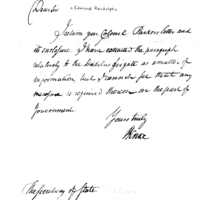 (Drawer <Edmund Randolph>
I return you Colonel Parkers letter and
its enclosure. I have the paragraph
relatively to the frigate as a matter of
information, but I cannot see that any
measure is required thereon on the part of
Government.
Yours truly
HKnox
The Secretary of State